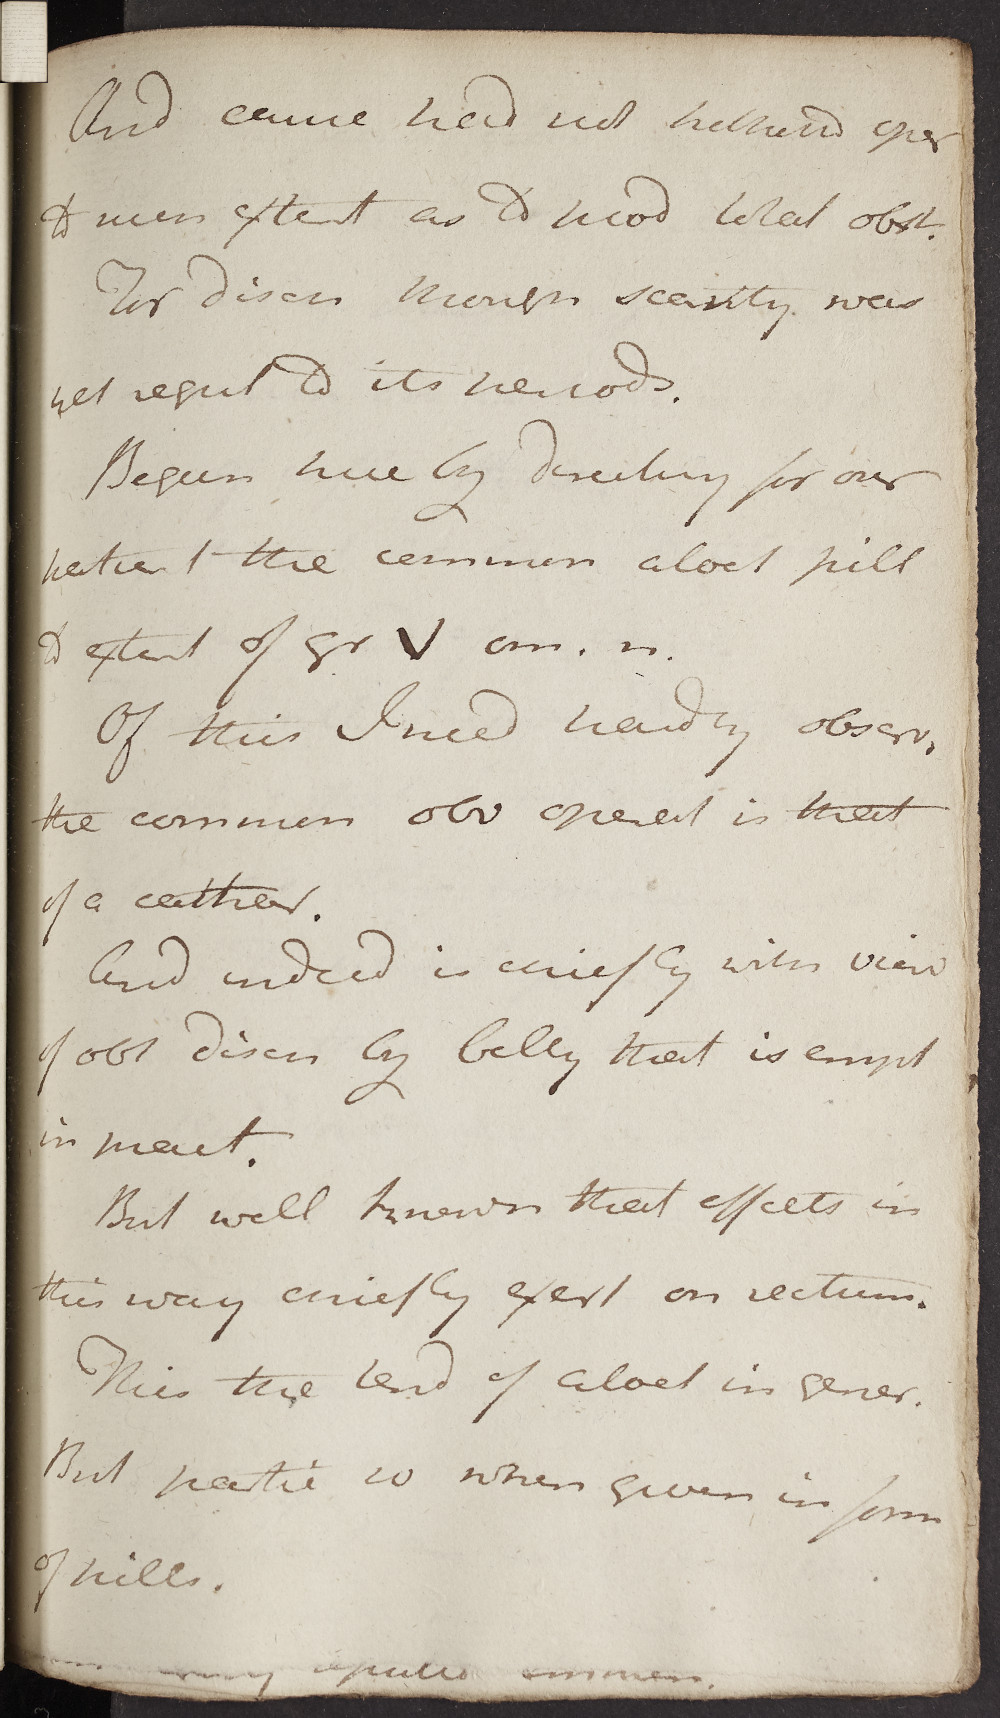 And cause had not hitherto oper
to such extent as to prod total obst.
For disch though scanty was
yet regul to its periods.
Began here by directing for our
patient the common aloet pill
to extent of gr V om. n.
Of this I need hardly observ,
the common obv operat is that
of a cathar.
And indeed is chiefly with view
of obt disch by belly that is empl
in pract.
But well known that effects in
this way chiefly exert on rectum.
This the tend of aloet in gener.
But partic so when given in form
of pills.